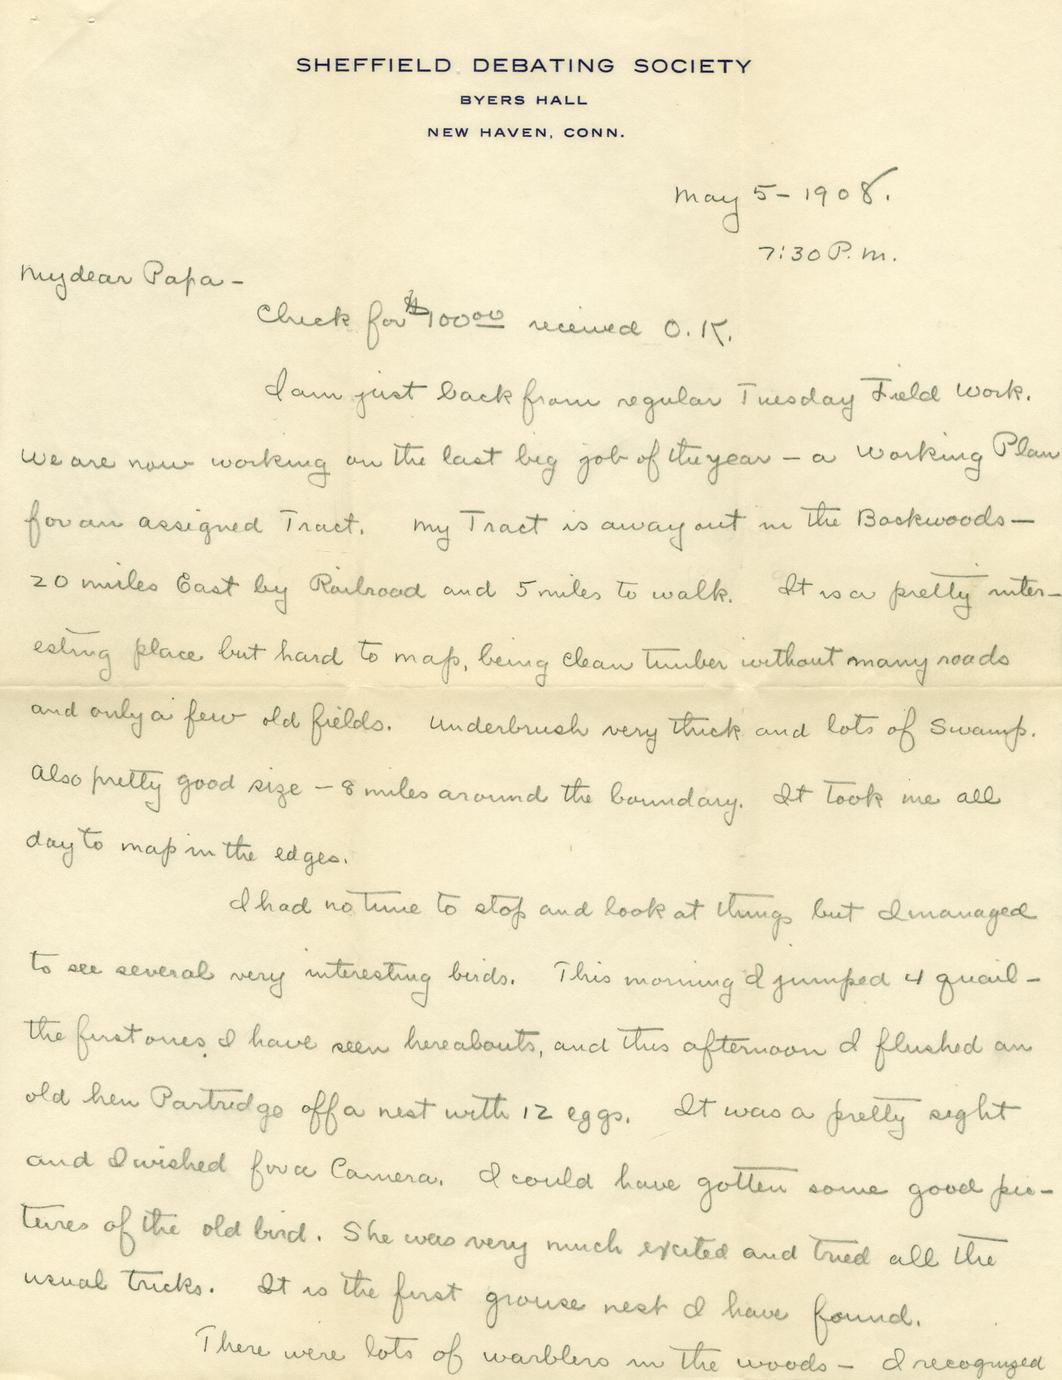 SHEFFIELD DEBATING SOCIETY
BYERS HALL
NEW HAVEN, CONN.
May 5 - 1908.
7:30 P.M.
My dear Papa -
Check for $100.00 received O.K.
I am just back from regular Tuesday Field Work.
We are now working on the last big job of the year - a Working Plan
for an assigned Tract. My Tract is away out in the Backwoods -
20 miles East by Railroad and 5 miles to walk. It is a pretty inter-
esting place but hard to map, being clean timber without many roads
and only a few old fields. Underbrush very thick and lots of Swamp.
Also pretty good size - 8 miles around the boundary. It took me all
day to map in the edges.
I had no time to stop and look at things but I managed
to see several very interesting birds. This morning I jumped 4 quail -
the first ones I have seen hereabouts, and this afternoon I flushed an
old hen Partridge off a nest with 12 eggs. It was a pretty sight
and I wished for a Camera. I could have gotten some good pic-
tures of the old bird. She was very much excited and tried all the
usual tricks. It is the first grouse nest I have found.
There were lots of warblers in the woods - I recognized